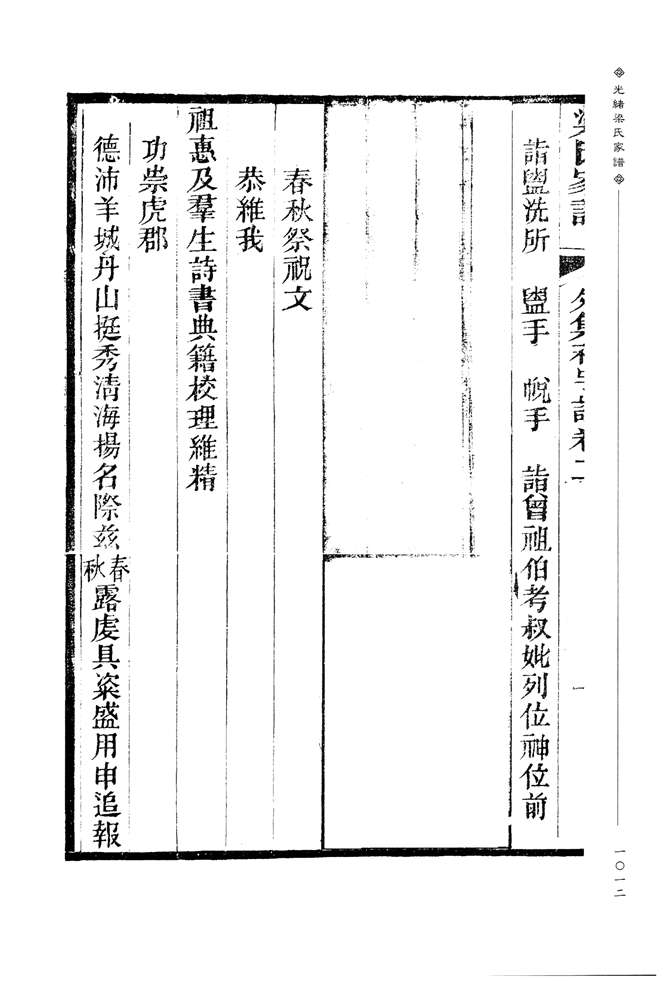 光緒梁氏家譜
一〇一二
梁氏家譜
卷二
一
詣盥洗所 盥手 帨手 詣曾祖伯考叔妣列位神位前
春秋祭祝文
恭維我
祖惠及羣生詩書典籍校理維精
功崇虎郡
德沛羊城丹山挺秀清海揚名際茲春秋露虔具粢盛用申追報